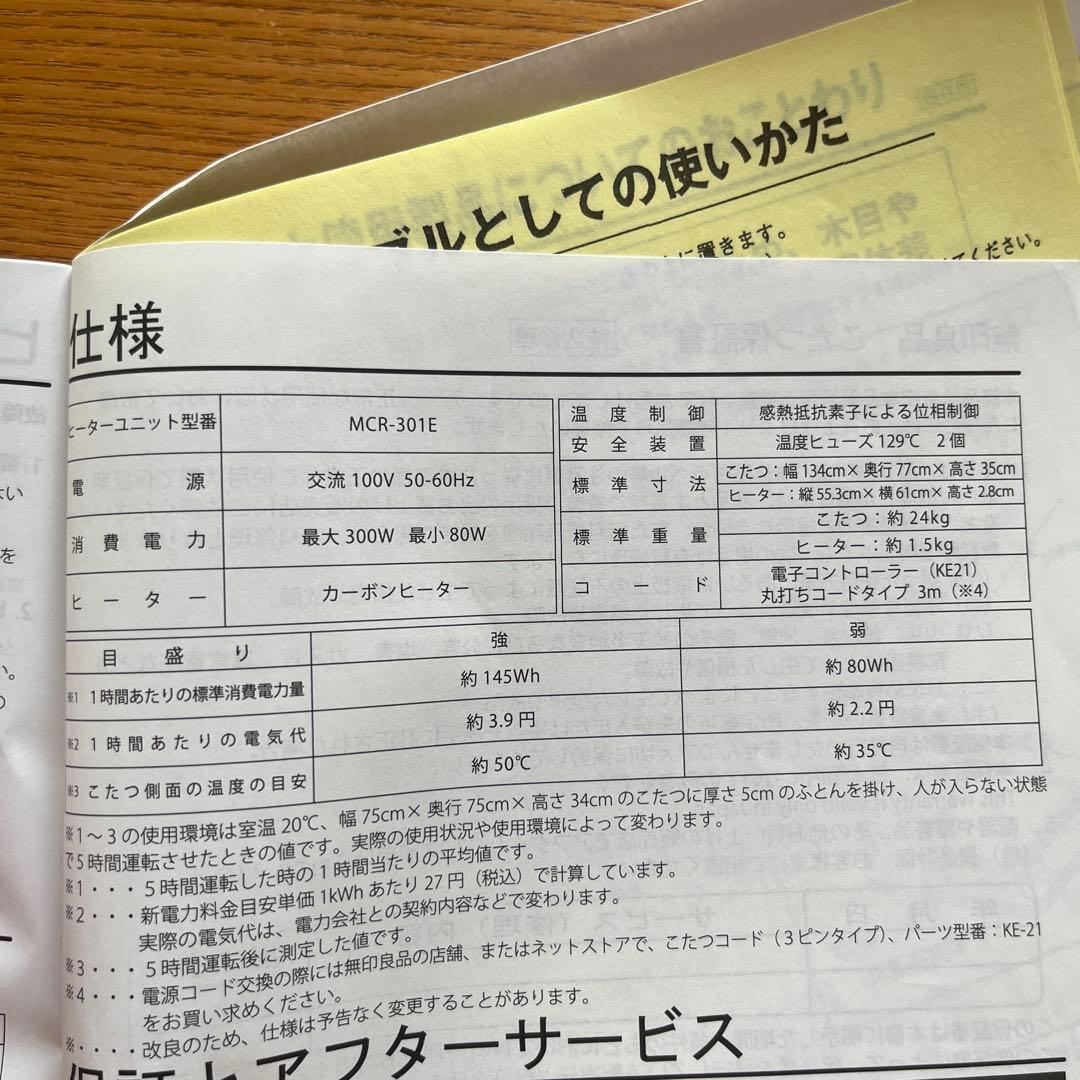 ブルとしての使いかた
に置きます。
てください。
仕様
ヒーターユニット型番 MCR-301E
電源 交流 100V 50-60Hz
消費電力 最大 300W 最小 80W
ヒーター カーボンヒーター
温度制御 感熱抵抗素子による位相制御
安全装置 温度ヒューズ 129℃ 2個
標準寸法 こたつ：幅 134cm× 奥行 77cm× 高さ 35cm
ヒーター：縦 55.3cm× 横 61cm× 高さ 2.8cm
標準重量 こたつ：約 24kg
ヒーター：約 1.5kg
コード 電子コントローラー（KE21）
丸打ちコードタイプ 3m（※4）
目盛り 強 弱
※1 1時間あたりの標準消費電力量 約 145Wh 約 80Wh
※2 1時間あたりの電気代 約 3.9 円 約 2.2 円
※3 こたつ側面の温度の目安 約 50℃ 約 35℃
※1～3の使用環境は室温 20℃、幅 75cm× 奥行 75cm× 高さ 34cm のこたつに厚さ 5cm のふとんを掛け、人が入らない状態
で5時間運転させたときの値です。実際の使用状況や使用環境によって変わります。
※1・・・5時間運転した時の1時間当たりの平均値です。
※2・・・新電力料金目安単価 1kWh あたり 27 円（税込）で計算しています。
実際の電気代は、電力会社との契約内容などで変わります。
※3・・・5時間運転後に測定した値です。
※4・・・電源コード交換の際には無印良品の店舗、またはネットストアで、こたつコード（3ピンタイプ）、パーツ型番：KE-21
をお買い求めください。
※・・・・改良のため、仕様は予告なく変更することがあります。
保証とアフターサービス